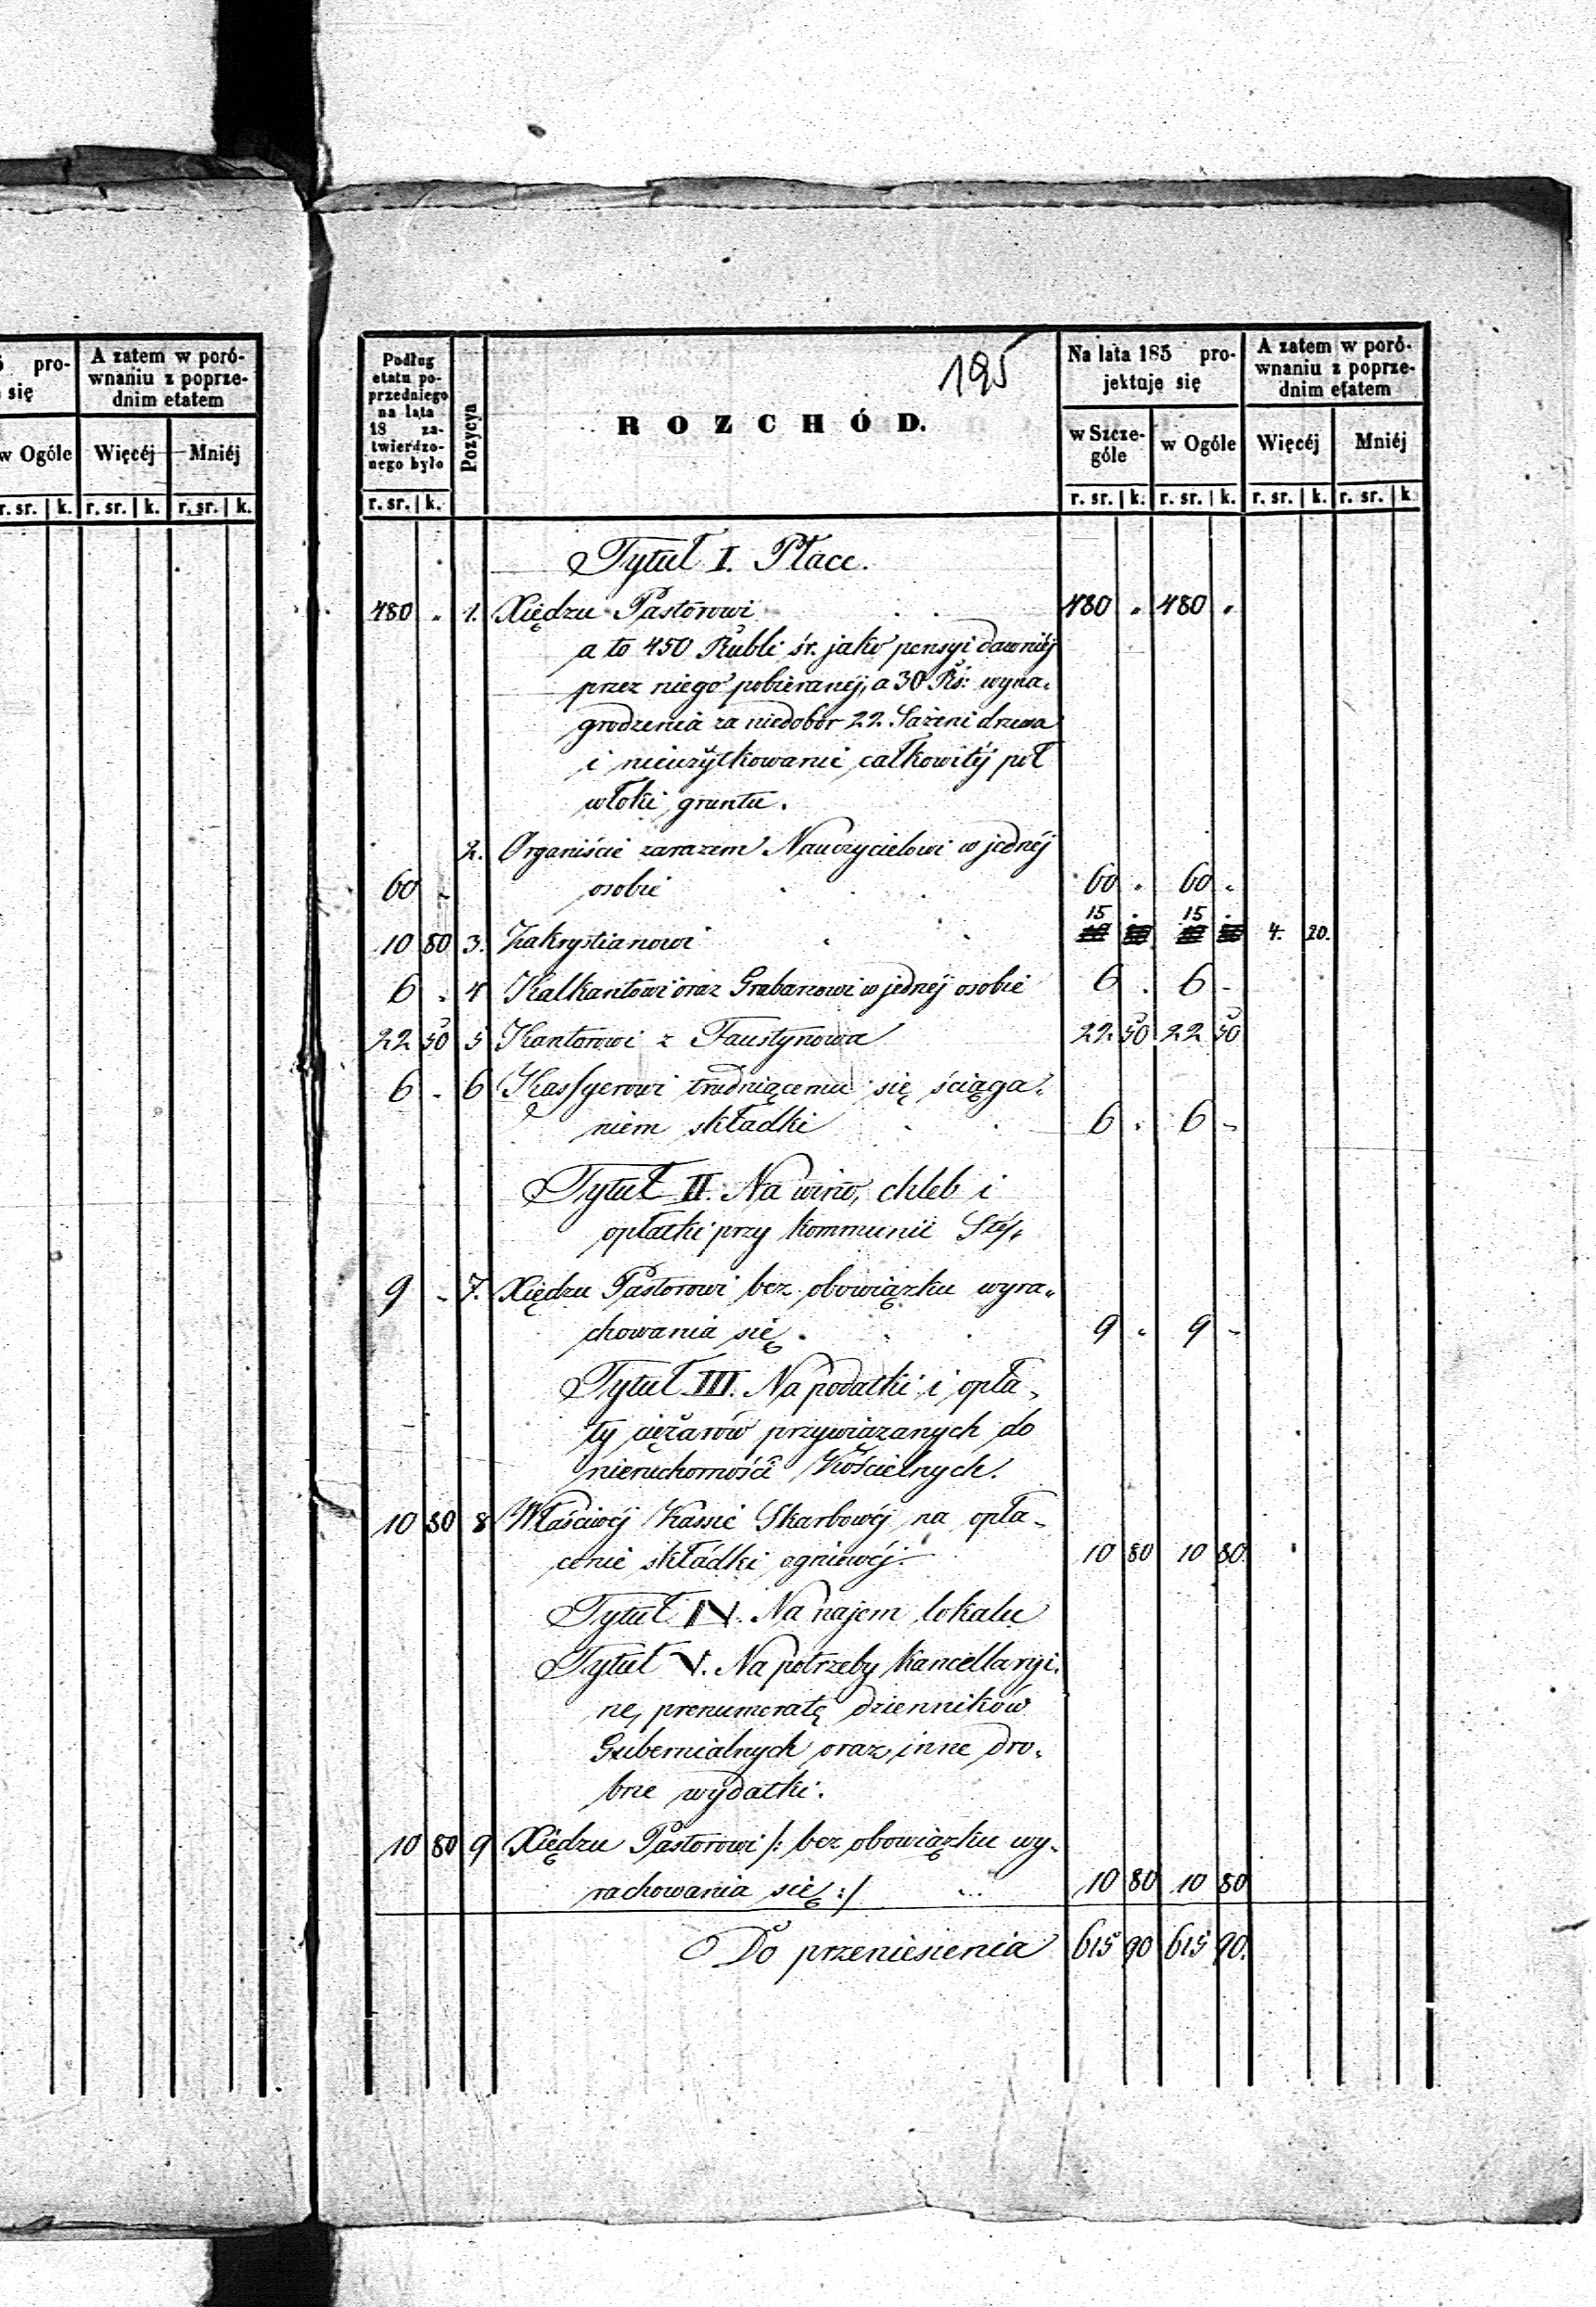 5 pro-
się
A zatem w poró-
wnaniu z poprze-
dnim etatem
w Ogóle
Więcéj
Mniéj
r. sr. k. r. sr. k. r. sr. k.
Podług
etatu po-
przedniego
na lata
18 za-
twierdzo-
nego było
r. sr. k.
Pozycya
195
ROZCHÓD.
Na lata 185 pro-
jektuje się
w Szcze-
góle
w Ogóle
r. sr. k. r. sr. k.
A zatem w poró-
wnaniu z poprze-
dnim etatem
Więcéj
Mniéj
r. sr. k. r. sr. k.
Tytuł I. Płace.
480 " 1. Xiędzu Pastorowi 480 " 480 "
a to 450 Rubli śr. jako pensyi dawniéj
przez niego pobieranéj, a 30 Rś: wyna-
grodzenia za niedobór 22. Sążeni drzewa
i nieużytkowanie całkowitéj pół
włoki gruntu.
2. Organiście zarazem Nauczycielowi w jednéj
60 - osobie 60 " 60 "
15 . 15 .
10 80 3. Zakrystianowi 4. 20.
6 . 4 Kalkantowi oraz Grabarzowi w jednéj osobie 6 . 6 -
22 50 5 Kantorowi z Faustynowa 22 50 22 50
6 - 6 Kassyerowi trudniącemu się ściąga-
niem składki 6 . 6 -
Tytuł II. Na wino, chleb i
opłatki przy kommunii Stéj.
9 - 7. Xiędzu Pastorowi bez obowiązku wyra-
chowania się. 9 " 9 -
Tytuł III. Na podatki i opła-
ty ciężarów przywiązanych do
nieruchomości Kościelnych.
10 80 8 Właściwéj Kassie Skarbowéj na opła-
cenie składki ogniowéj. 10 80 10 80
Tytuł IV. Na najem lokalu
Tytuł V. Na potrzeby kancellaryj-
ne, prenumeratę dzienników
Gubernialnych oraz inne dro-
bne wydatki.
10 80 9 Xiędzu Pastorowi /: bez obowiązku wy-
rachowania się :/ 10 80 10 80
Do przeniesienia 615 90 615 90.